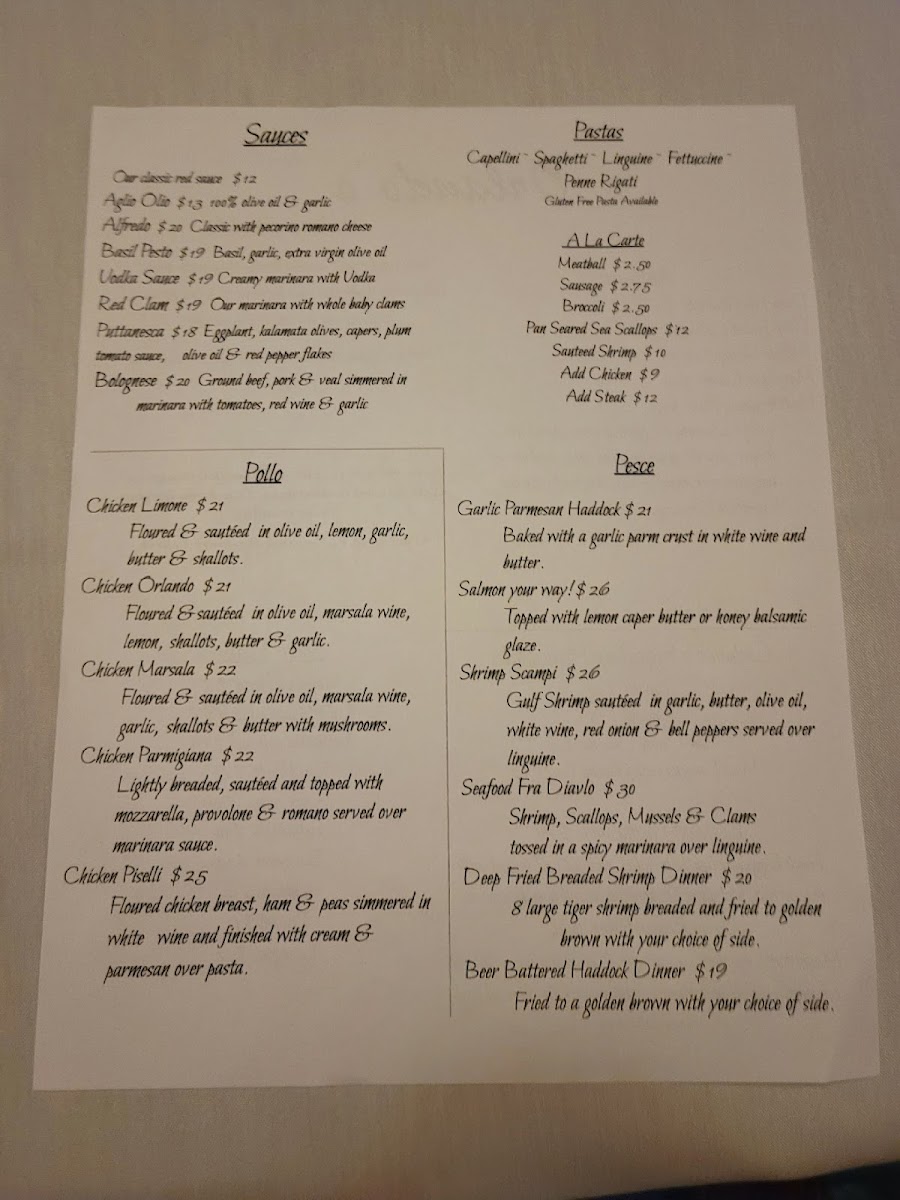 Sauces
Our classic red sauce $12
Aglio Olio $13 100% olive oil & garlic
Alfredo $20 Classic with pecorino romano cheese
Basil Pesto $19 Basil, garlic, extra virgin olive oil
Vodka Sauce $19 Creamy marinara with Vodka
Red Clam $19 Our marinara with whole baby clams
Puttanesca $18 Eggplant, kalamata olives, capers, plum
tomato sauce, olive oil & red pepper flakes
Bolognese $20 Ground beef, pork & veal simmered in
marinara with tomatoes, red wine & garlic
Pastas
Capellini ~ Spaghetti ~ Linguine ~ Fettuccine ~
Penne Rigati
Gluten Free Pasta Available
A La Carte
Meatball $2.50
Sausage $2.75
Broccoli $2.50
Pan Seared Sea Scallops $12
Sauteed Shrimp $10
Add Chicken $9
Add Steak $12
Pollo
Chicken Limone $21
Floured & sautéed in olive oil, lemon, garlic,
butter & shallots.
Chicken Orlando $21
Floured & sautéed in olive oil, marsala wine,
lemon, shallots, butter & garlic.
Chicken Marsala $22
Floured & sautéed in olive oil, marsala wine,
garlic, shallots & butter with mushrooms.
Chicken Parmigiana $22
Lightly breaded, sautéed and topped with
mozzarella, provolone & romano served over
marinara sauce.
Chicken Piselli $25
Floured chicken breast, ham & peas simmered in
white wine and finished with cream &
parmesan over pasta.
Pesce
Garlic Parmesan Haddock $21
Baked with a garlic parm crust in white wine and
butter.
Salmon your way! $26
Topped with lemon caper butter or honey balsamic
glaze.
Shrimp Scampi $26
Gulf Shrimp sautéed in garlic, butter, olive oil,
white wine, red onion & bell peppers served over
linguine.
Seafood Fra Diavlo $30
Shrimp, Scallops, Mussels & Clams
tossed in a spicy marinara over linguine.
Deep Fried Breaded Shrimp Dinner $20
8 large tiger shrimp breaded and fried to golden
brown with your choice of side.
Beer Battered Haddock Dinner $19
Fried to a golden brown with your choice of side.